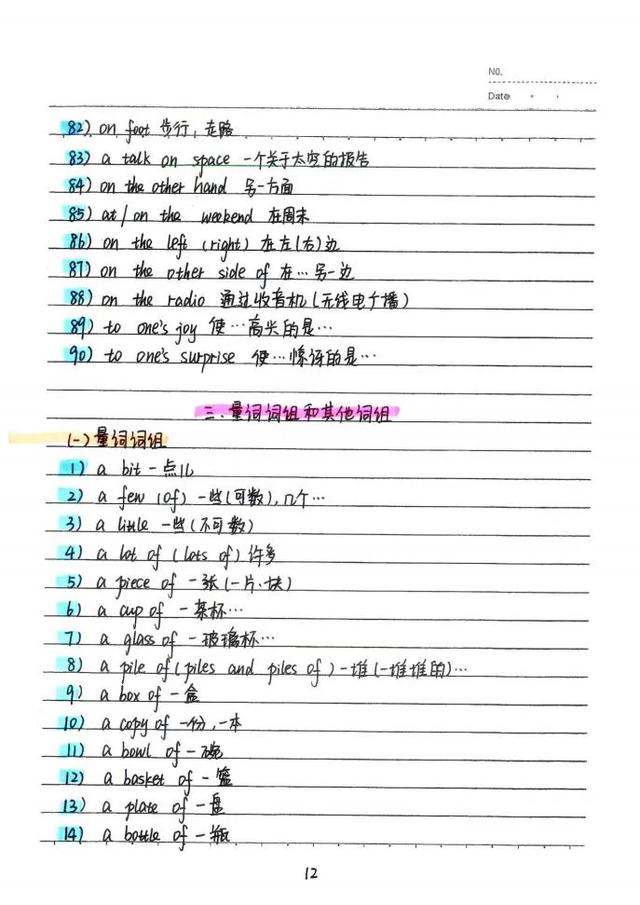 NO.
Date
82) on foot 步行，走路
83) a talk on space 一个关于太空的报告
84) on the other hand 另一方面
85) at / on the weekend 在周末
86) on the left (right) 在左(右)边
87) on the other side of 在…另一边
88) on the radio 通过收音机(无线电广播)
89) to one's joy 使…高兴的是…
90) to one's surprise 使…惊讶的是…
三、量词词组和其他词组
(一)量词词组
1) a bit 一点儿
2) a few (of) 一些(可数),几个…
3) a little 一些(不可数)
4) a lot of (lots of) 许多
5) a piece of 一张(一片、块)
6) a cup of 一茶杯…
7) a glass of 一玻璃杯…
8) a pile of (piles and piles of) 一堆(一堆堆的)…
9) a box of 一盒
10) a copy of 一份,一本
11) a bowl of 一碗
12) a basket of 一篮
13) a plate of 一盘
14) a bottle of 一瓶
12